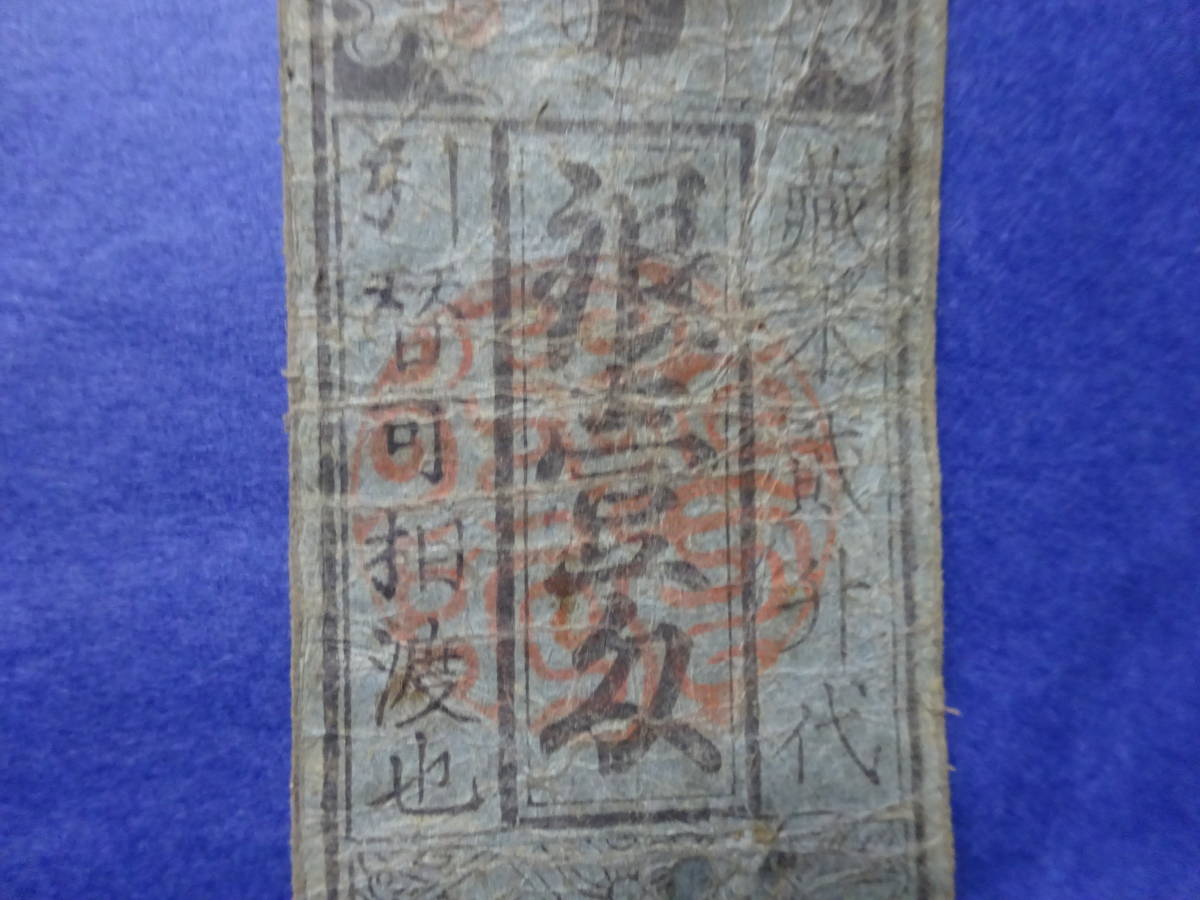 蔵米貳升代
銀壹匁
引替可相渡也